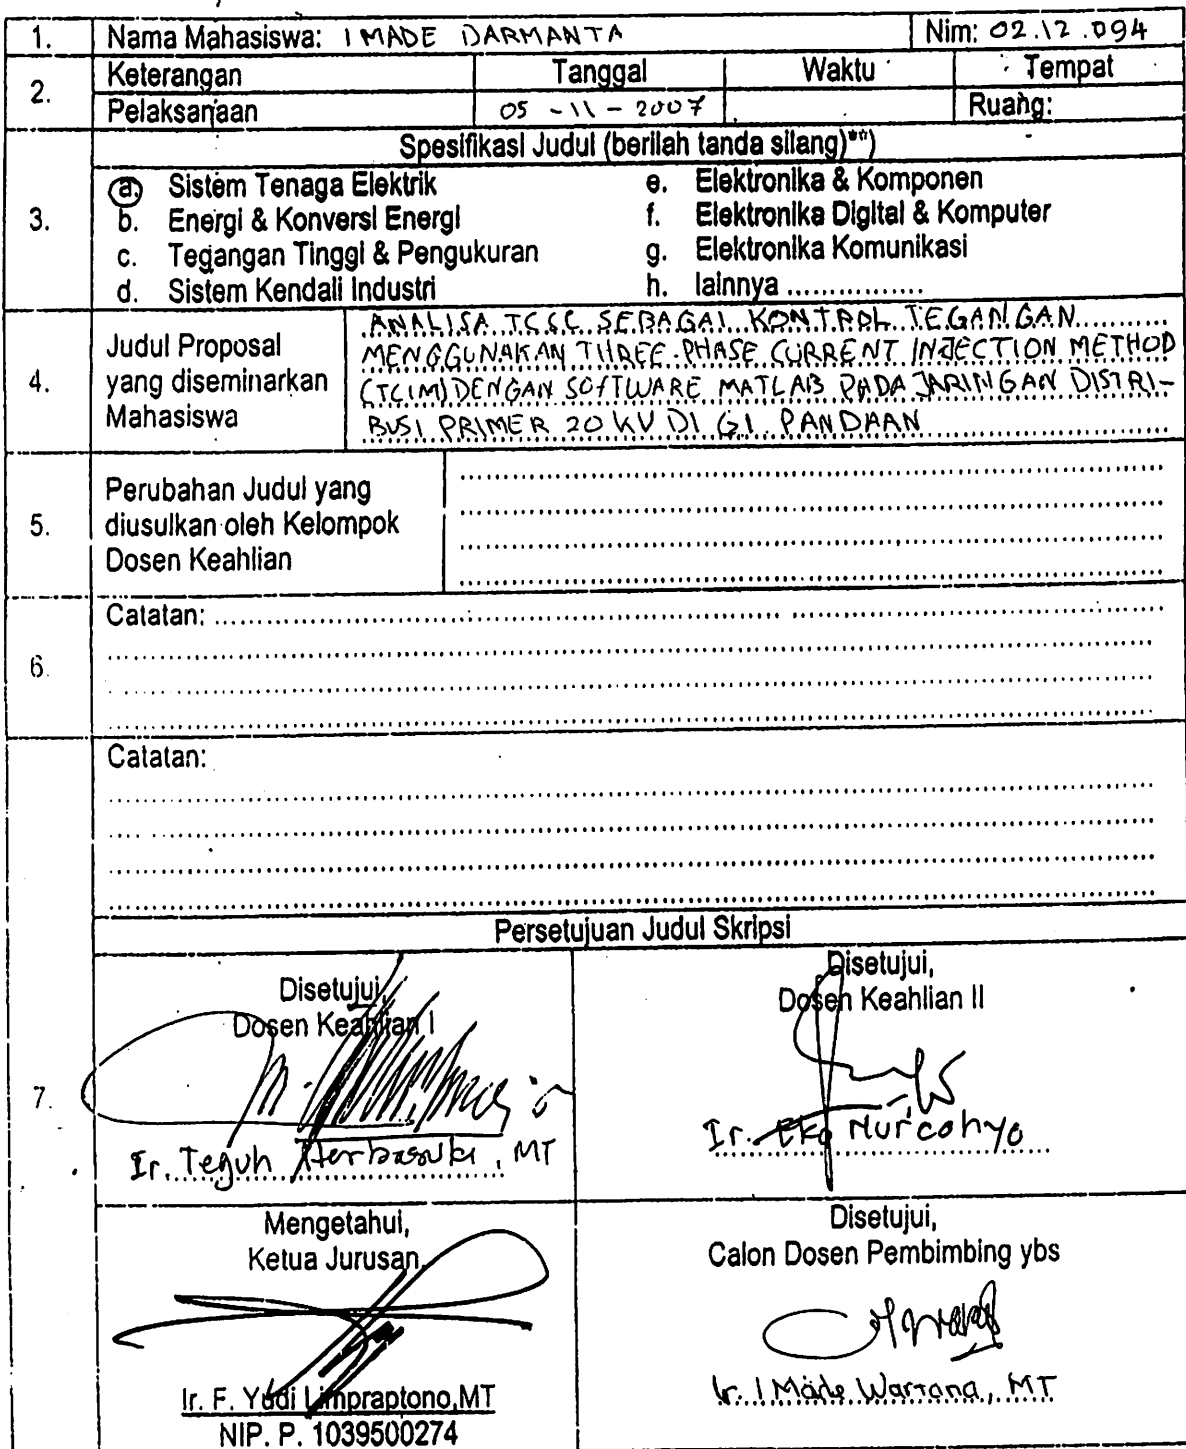 1. Nama Mahasiswa: I MADE DARMANTA Nim: 02.12.094
2. Keterangan Tanggal Waktu Tempat
Pelaksanaan 05 - 11 - 2007 Ruang:
Spesifikasi Judul (berilah tanda silang)**)
3.
a. Sistem Tenaga Elektrik e. Elektronika & Komponen
b. Energi & Konversi Energi f. Elektronika Digital & Komputer
c. Tegangan Tinggi & Pengukuran g. Elektronika Komunikasi
d. Sistem Kendali Industri h. lainnya ...............
4. Judul Proposal yang diseminarkan Mahasiswa
ANALISA TCSC SEBAGAI KONTROL TEGANGAN
MENGGUNAKAN THREE-PHASE CURRENT INJECTION METHOD
(TCIM) DENGAN SOFTWARE MATLAB PADA JARINGAN DISTRI-
BUSI PRIMER 20 KV DI G.I. PANDAAN
5. Perubahan Judul yang
diusulkan oleh Kelompok
Dosen Keahlian
6. Catatan:
Catatan:
Persetujuan Judul Skripsi
7.
Disetujui,
Dosen Keahlian I
Ir. Teguh Herbasuki, MT
Disetujui,
Dosen Keahlian II
Ir. Eko Nurcahyo
Mengetahui,
Ketua Jurusan,
Ir. F. Yudi Limpraptono,MT
NIP. P. 1039500274
Disetujui,
Calon Dosen Pembimbing ybs
Ir. I Made Wartana, MT